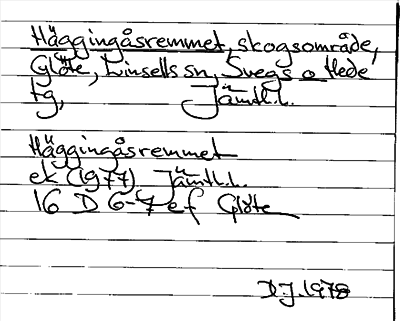 Häggingåsremmet, skogsområde,
Glöte, Linsells sn, Svegs o Hede
tg, Jämtl.l.
Häggingåsremmet
ek (1977) Jämtl.l.
16 D 6-7 e f Glöte
D.J. 1978